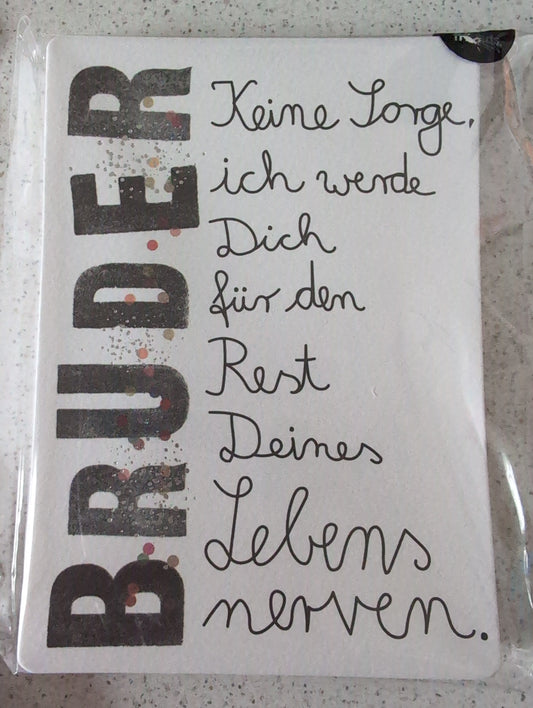 BRUDER
Keine Sorge,
ich werde
Dich
für den
Rest
Deines
Lebens
nerven.